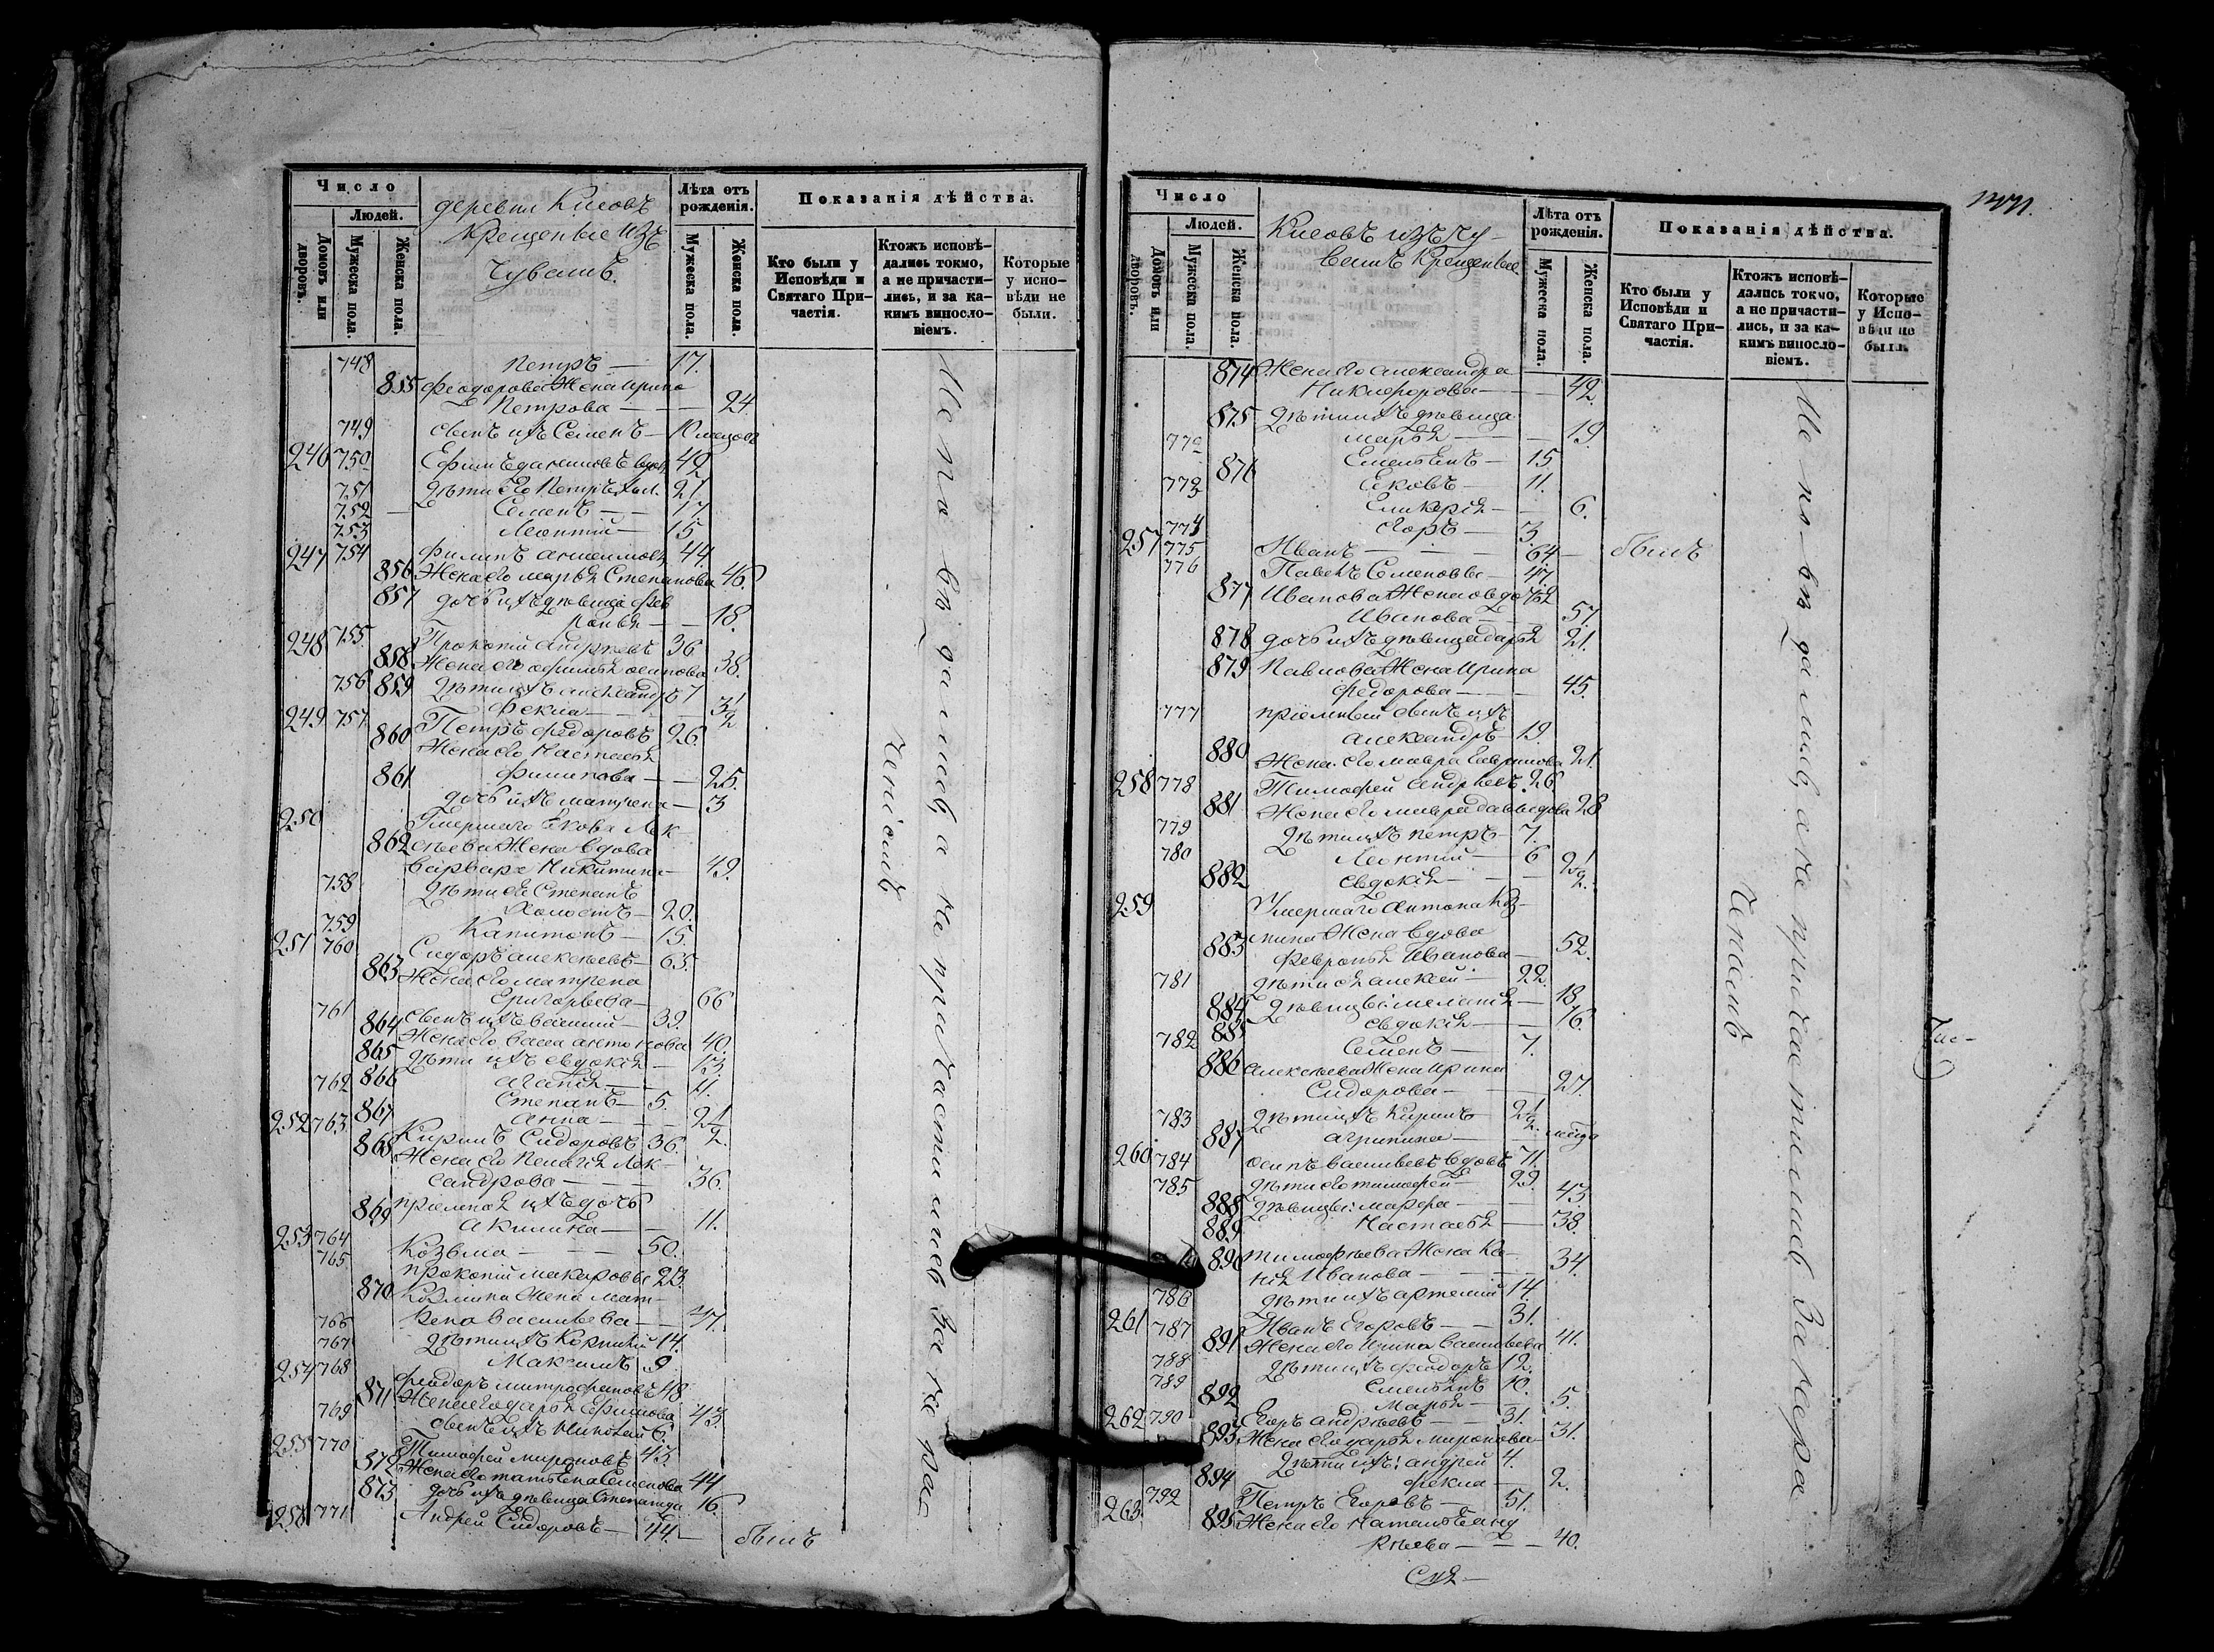 Число
Людей.
Домовъ или дворовъ.
Мужеска пола.
Женска пола.
деревни Кисовъ
Крещеные изъ
Чувашъ.
Лѣта отъ рожденія.
Мужеска пола.
Женска пола.
Показанія дѣйства.
Кто были у Исповѣди и Святаго Причастія.
Ктожъ исповѣдались токмо, а не причастились, и за какимъ винословіемъ.
Которые у исповѣди не были.
748 Петръ — 17.
855 Феодорова Жена Ирина
Петрова — 24.
749 сынъ ихъ Семенъ —
246 750 Ефимъ вдовъ 42
751 дѣти его Петръ хол. 21
752 Семенъ — 17
753 Леонтій — 15
247 754 Филипъ 44.
856 Жена его Марья Степанова 46
857 дочь ихъ дѣвица Фев
ронья — 18.
248 755 Прокопій Андреевъ 36
858 Жена его Офимья Осипова 38.
756 859 дѣти ихъ Александръ 7
Фекла — 3 1/2
249 757 Петръ Федоровъ 26.
860 Жена его Настасья
861 Филипова — 25.
дочь ихъ Матрена — 3
250 Умершаго Якова Лек-
862 сѣева Жена вдова
Варвара Никитина — 49.
758 дѣти ея Степанъ
Холостъ — 20.
759 Капитонъ — 15.
251 760 Сидоръ Алексѣевъ — 65.
863 Жена его Матрена
Григорьева — 66
761 сынъ ихъ Василий — 39.
864 Жена его Васса Антонова 40.
865 дѣти ихъ Евдокія — 13.
762 866 Агапія — 11.
Степанъ — 5.
867 Анна — 2 1/2.
252 763 Кирилъ Сидоровъ 36.
868 Жена его Пелагея Лек-
сандрова — 36.
869 пріемная ихъ дочь
Акилина — 11.
253 764 Козьма — 50.
765 Прокопій Макаровы 23.
870 Козмина Жена Мат-
рена Васильева — 47.
766 дѣти ихъ Корнилій 14.
767 Максимъ 9
254 768 Феодоръ Митрофановъ 48.
871 Жена его Дарья Ефимова 43.
769 сынъ ихъ Николай 6.
255 770 Тимофей Мироновъ 43.
872 Жена его Татьяна Семенова 44
873 дочь ихъ дѣвица Степанида 16.
256 771 Андрей Сидоровъ — 44. — былъ
Исповѣдались, а не причастились За нерадѣніемъ
Число
Людей.
Домовъ или дворовъ.
Мужеска пола.
Женска пола.
Кисовъ изъ Чу-
вашъ Крещеные
Лѣта отъ рожденія.
Мужеска пола.
Женска пола.
Показанія дѣйства.
Кто были у Исповѣди и Святаго Причастія.
Ктожъ исповѣдались токмо, а не причастились, и за какимъ винословіемъ.
Которые у Исповѣди не были.
874 Жена его Александра
Никифорова — 42.
875 дѣти ихъ дѣвица
Марья — 19.
772 Емельянъ — 15
876
773 Яковъ — 11.
Гликерія — 6.
774 Егоръ — 3.
257 775 Иванъ — 64 — былъ
776 Павелъ Семеновы — 47.
877 Иванова Жена
Иванова — 57.
878 дочь ихъ дѣвица Дарья 21.
879 Павлова Жена Ирина
Федорова — 45.
777 пріемный сынъ ихъ
Александръ 19.
880 Жена его Мавра Гаврилова 21.
258 778 Тимофей Андреевъ 26
881 Жена его Мавра Давыдова 28
779 дѣти ихъ Петръ — 7.
780 Леонтій — 6
882 Евдокія — 2 1/2.
259 Умершаго Антона Коз-
883 мина Жена вдова
Февронья Иванова — 52.
781 дѣти ея Алексей — 22.
884 дѣвицы: Меланія — 18
885 Евдокія — 16.
782 Семенъ — 7.
886 Алексѣева Жена Ирина
Сидорова — 27.
783 дѣти ихъ Кирилъ 2 1/2.
887 Агрипина —
260 784 Осипъ Васильевъ вдовъ 71.
785 дѣти его Тимофей — 29.
888 дѣвицы: Марфа — 43
889 Настасья — 38.
890 Тимофѣева Жена Кс-
нія Иванова — 34.
786 дѣти ихъ Артемій 14.
261 787 Иванъ Егоровъ — 31.
891 Жена его Ирина Васильева 41.
788 дѣти ихъ Феодоръ 12.
789 Емельянъ 10.
892 Марья — 5.
262 790 Егоръ Андреевъ — 31.
893 Жена его Дарья Миронова 31.
дѣти ихъ: Андрей 4.
894 Фекла — 2.
263 792 Петръ Егоровъ — 51.
895 Жена его Наталья Анд
реева — 40.
Исповѣдались, а не причастились За нерадѣніемъ